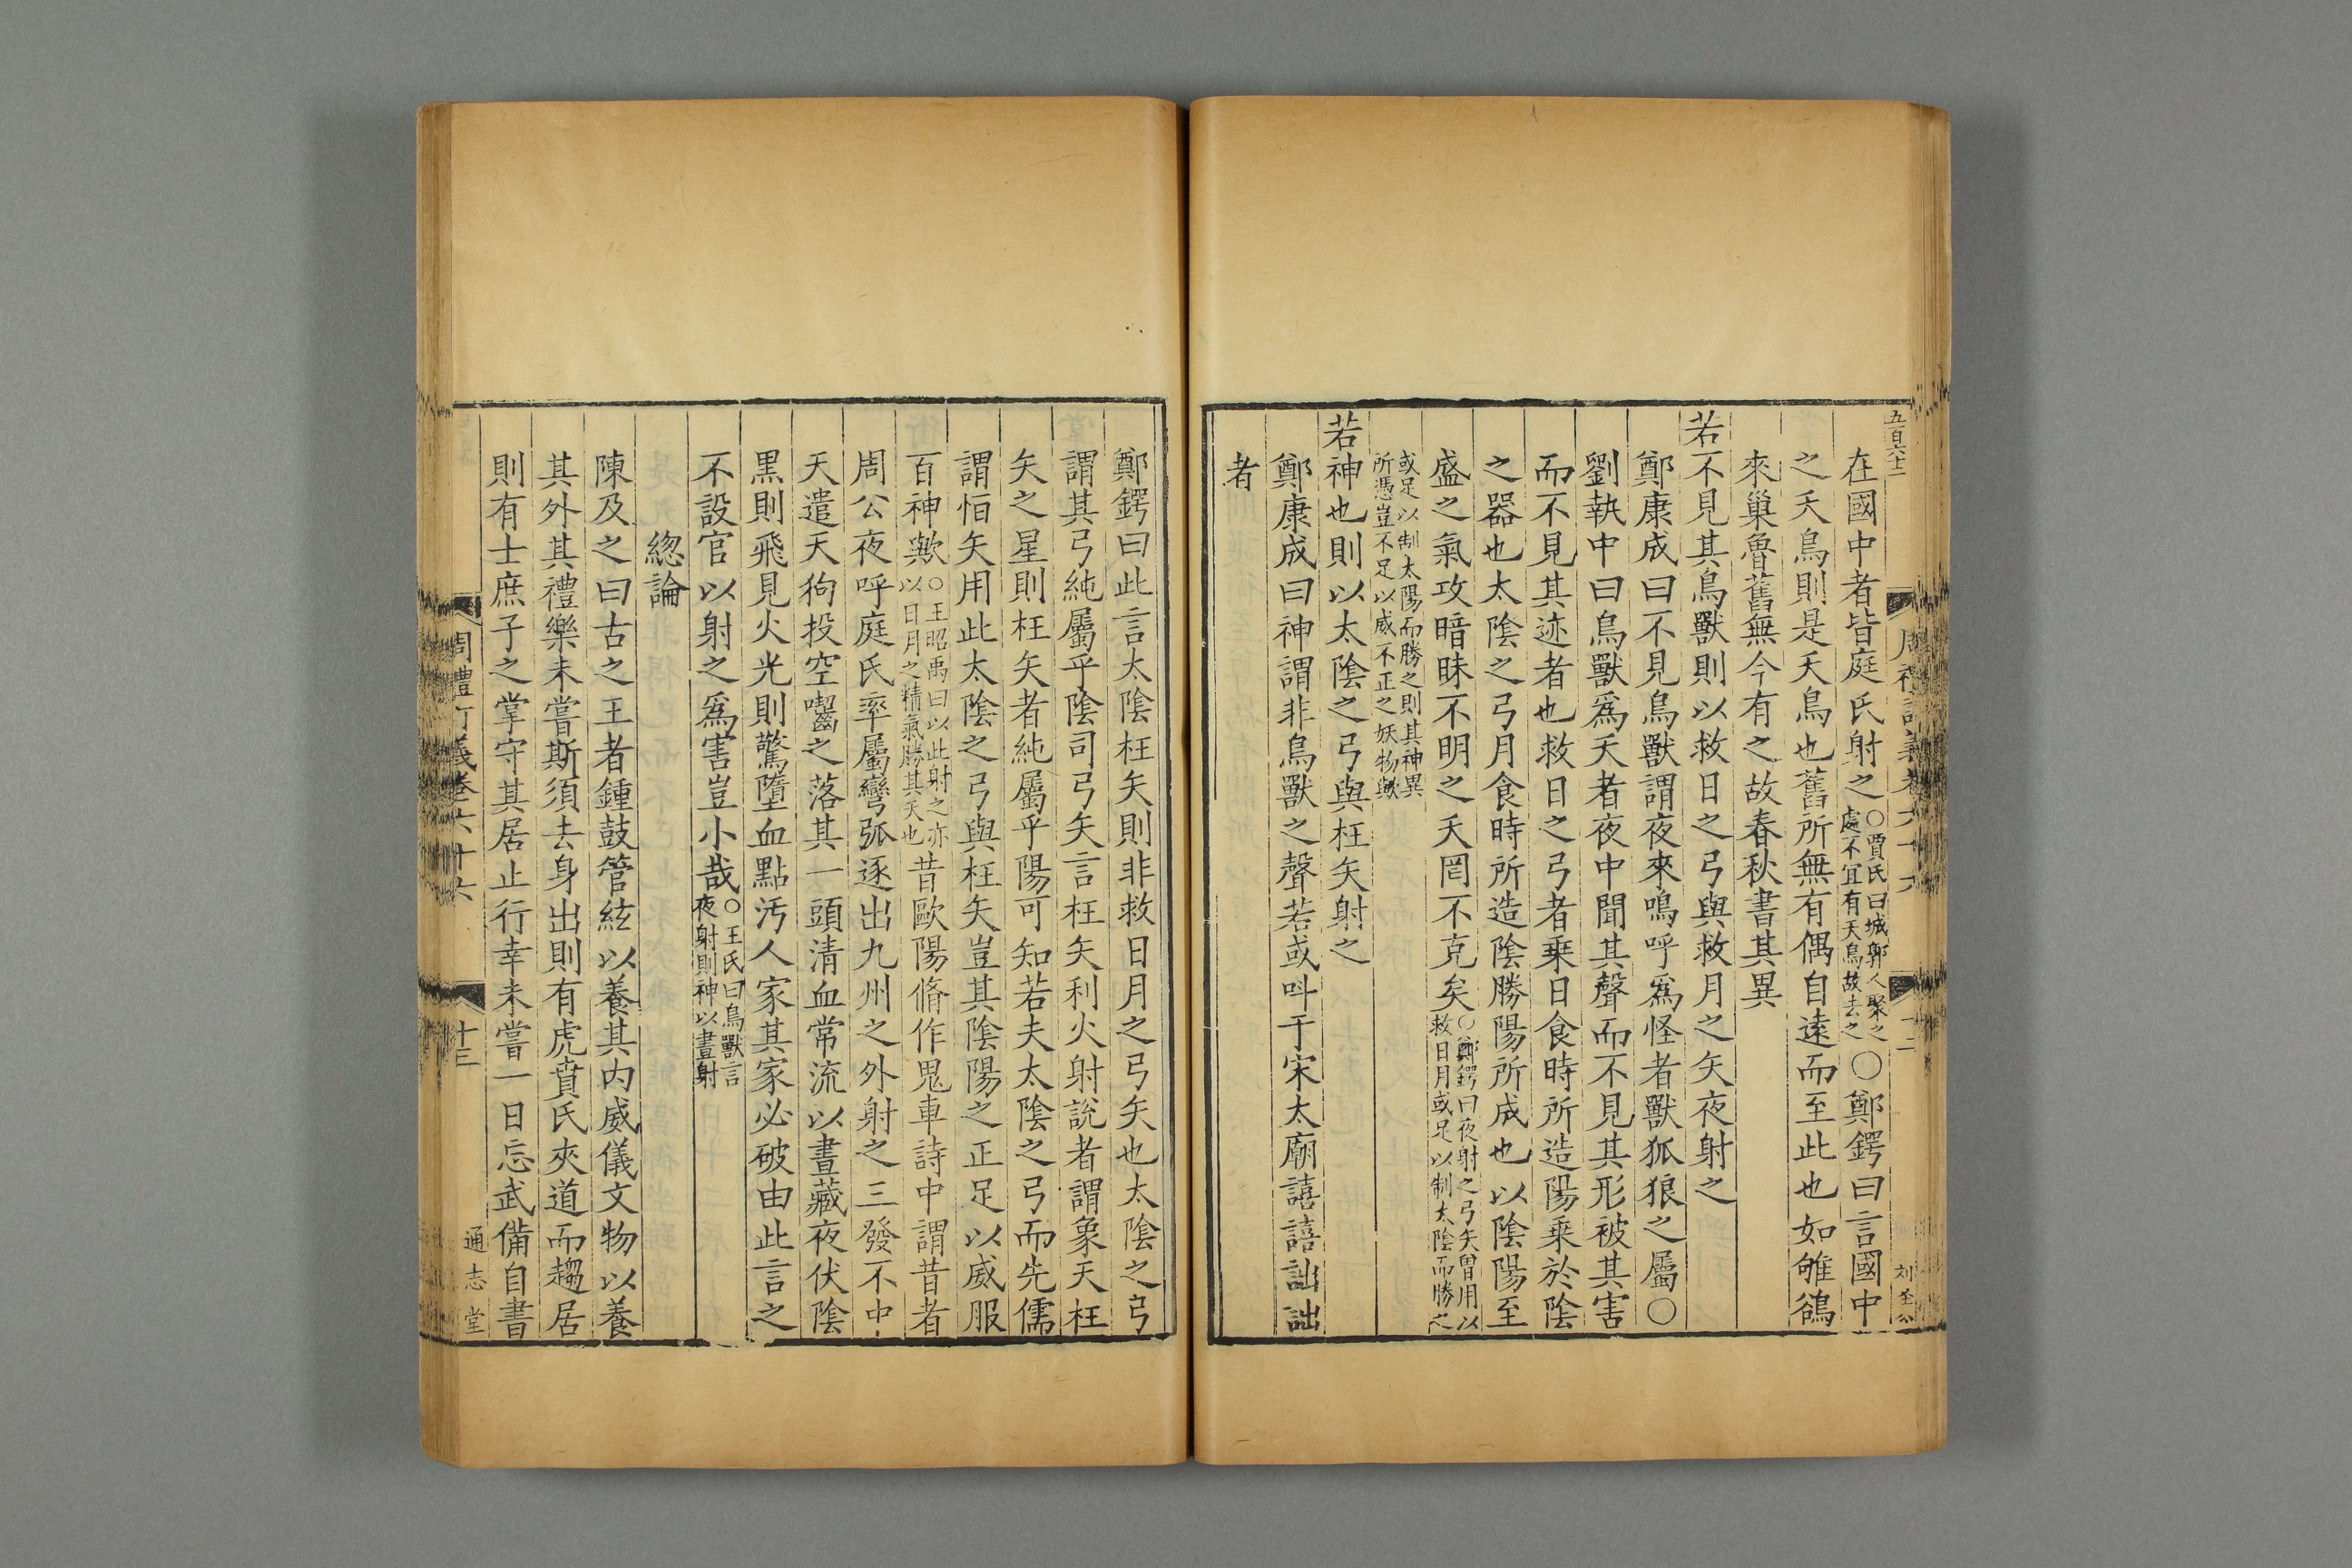 五百六十二
在國中者皆庭氏射之○賈氏曰城郭人聚之處不宜有夭鳥故去之○鄭鍔曰言國中
之夭鳥則是夭鳥也舊所無有偶自遠而至此也如鴝鵒
來巢魯舊無今有之故春秋書其異
若不見其鳥獸則以救日之弓與救月之矢夜射之
鄭康成曰不見鳥獸謂夜來鳴呼爲怪者獸狐狼之屬○
劉執中曰鳥獸爲夭者夜中聞其聲而不見其形被其害
而不見其迹者也救日之弓者乗日食時所造陽乗於陰
之器也太陰之弓月食時所造陰勝陽所成也以陰陽至
盛之氣攻暗昧不明之夭罔不克矣○鄭鍔曰夜射之弓矢胃用以救日月或足以制太陰而勝之
或足以制太陽而勝之則其神異所憑豈不足以威不正之妖物歟
若神也則以太陰之弓與枉矢射之
鄭康成曰神謂非鳥獸之聲若或呌于宋太廟譆譆詘詘
者
鄭鍔曰此言太陰枉矢則非救日月之弓矢也太陰之弓
謂其弓純屬乎陰司弓矢言枉矢利火射說者謂象天枉
矢之星則枉矢者純屬乎陽可知若夫太陰之弓而先儒
謂恒矢用此太陰之弓與枉矢豈其陰陽之正足以威服
百神歟○王昭禹曰以此射之亦以日月之精氣勝其夭也昔歐陽脩作鬼車詩中謂昔者
周公夜呼庭氏率屬彎弧逐出九州之外射之三發不中
天遣天狗投空嚙之落其一頭清血常流以晝藏夜伏陰
黒則飛見火光則驚墮血點汚人家其家必破由此言之
不設官以射之爲害豈小哉○王氏曰鳥獸言夜射則神以晝射
緫論
陳及之曰古之王者鍾鼓管絃以養其内威儀文物以養
其外其禮樂未嘗斯須去身出則有虎賁氏夾道而趨居
則有士庶子之掌守其居止行幸未嘗一日忘武備自書
十三
通志堂